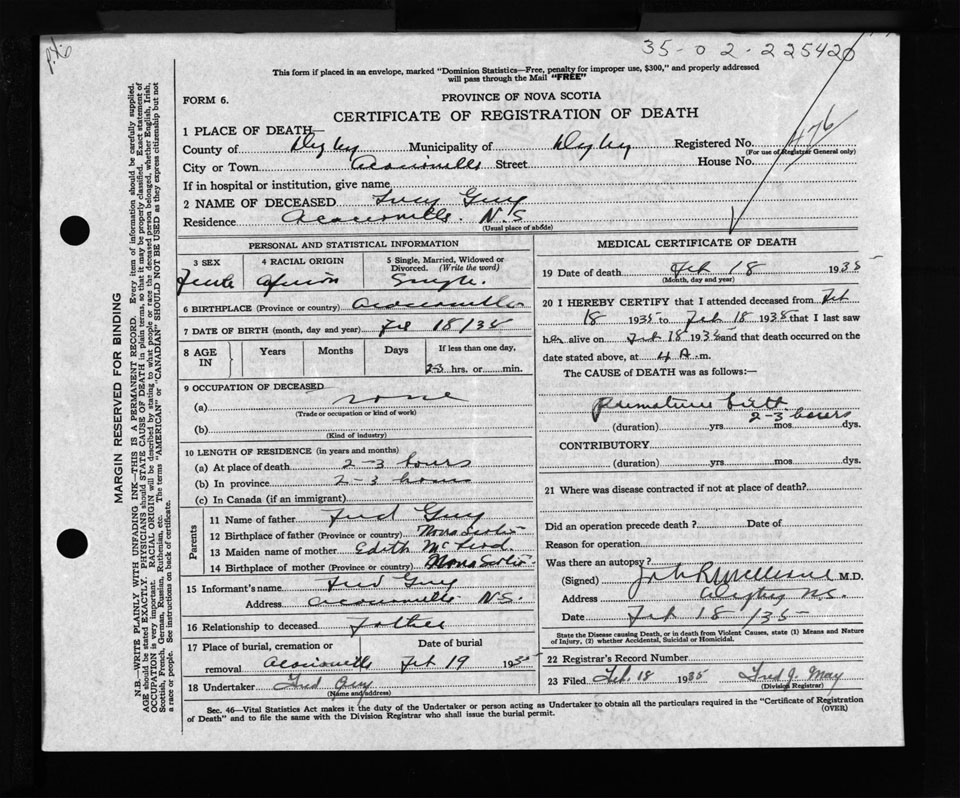 P.X.6
35-02-225420
This form if placed in an envelope, marked "Dominion Statistics—Free, penalty for improper use, $300," and properly addressed
will pass through the Mail "FREE"
FORM 6.
PROVINCE OF NOVA SCOTIA
CERTIFICATE OF REGISTRATION OF DEATH
1 PLACE OF DEATH—
County of Digby Municipality of Digby Registered No. 476
(For use of Registrar General only)
City or Town Acaciaville Street House No.
If in hospital or institution, give name
2 NAME OF DECEASED Guy
Residence Acaciaville N.S
(Usual place of abode)
PERSONAL AND STATISTICAL INFORMATION
3 SEX 4 RACIAL ORIGIN 5 Single, Married, Widowed or Divorced. (Write the word)
Female African Single.
6 BIRTHPLACE (Province or country) Acaciaville
7 DATE OF BIRTH (month, day and year) Feb 18/35
8 AGE IN Years Months Days If less than one day,
2-3 hrs. or min.
9 OCCUPATION OF DECEASED
(a) none
(Trade or occupation or kind of work)
(b)
(Kind of industry)
10 LENGTH OF RESIDENCE (in years and months)
(a) At place of death 2-3 hours
(b) In province 2-3 hours
(c) In Canada (if an immigrant)
Parents
11 Name of father Fred Guy
12 Birthplace of father (Province or country) Nova Scotia
13 Maiden name of mother Edith McLeod
14 Birthplace of mother (Province or country) Nova Scotia
15 Informant's name Fred Guy
Address Acaciaville N.S.
16 Relationship to deceased father
17 Place of burial, cremation or removal Date of burial
Acaciaville Feb 19 1935
18 Undertaker Fred Guy
(Name and address)
MEDICAL CERTIFICATE OF DEATH
19 Date of death Feb 18 1935
(Month, day and year)
20 I HEREBY CERTIFY that I attended deceased from Feb
18 1935 to Feb 18 1935 that I last saw
her alive on Feb 18 1935 and that death occurred on the
date stated above, at 4 A.m.
The CAUSE of DEATH was as follows:—
premature birth
2-3 hours
(duration) yrs mos dys.
CONTRIBUTORY
(duration) yrs mos dys.
21 Where was disease contracted if not at place of death?
Did an operation precede death? Date of
Reason for operation
Was there an autopsy?
(Signed) M.D.
Address Digby N.S.
Date Feb 18/35
State the Disease causing Death, or in death from Violent Causes, state (1) Means and Nature
of Injury, (2) whether Accidental, Suicidal or Homicidal.
22 Registrar's Record Number
23 Filed Feb. 18 1935 Fred J. May
(Division Registrar)
Sec. 46—Vital Statistics Act makes it the duty of the Undertaker or person acting as Undertaker to obtain all the particulars required in the "Certificate of Registration
of Death" and to file the same with the Division Registrar who shall issue the burial permit.
(OVER)
MARGIN RESERVED FOR BINDING
N.B.—WRITE PLAINLY WITH UNFADING INK—THIS IS A PERMANENT RECORD. Every item of information should be carefully supplied.
AGE should be stated EXACTLY. PHYSICIANS should STATE CAUSE OF DEATH in plain terms, so that it may be properly classified. Exact statement of
OCCUPATION is very important. RACIAL ORIGIN will be described by stating to what people or race the deceased person belonged, whether English, Irish,
Scottish, French, German, Russian, Ruthenian, etc. The terms "AMERICAN" or "CANADIAN" SHOULD NOT BE USED as they express citizenship but not
a race or people. See instructions on back of certificate.